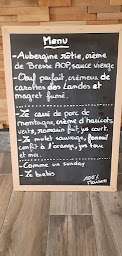 Menu
- Aubergine rôtie, crème
de Bresse AOP, sauce vierge
- Oeuf parfait, crémeux de
carottes des Landes et
magret fumé.
- Ze cassi de porc de
montagne, crème d'haricots
verts, romarin fait, jus court.
- Ze mulet sauvage, fenouil
confit à l'orange, jus tout
et moi.
- Comme un sunday
- Ze brebis
100%
Maison